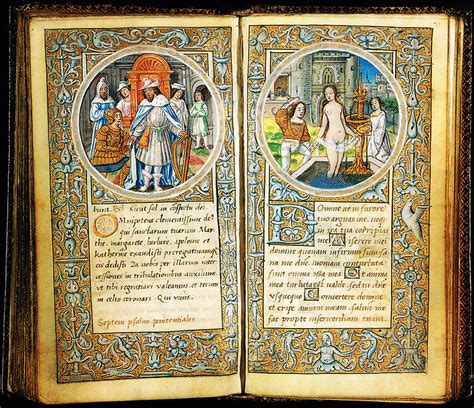 bunt. Sicut sol in cōspectu dei.
Omnipotens clementissime deꝰ
qui sanctarum tuarum Mar
the. margarete barbare, apolonie et
katherine exaudisti prerogatiuam
dedisti da nobis per illarum inter
in tribulationibus auxilium.
et tibi regratiari valeamus et tecum
in celis coronari. Qui viuis.
Septem psalmi penitentiales
Domine ne in furore
tuo arguas me. neqꝫ
in ira tua corripias
Miserere mei
domine quoniam infirmus sum sa
na me domine quoniam conturbata
sunt omnia ossa mea Et anima
mea turbata est ualde. sed tu dñe
usquequo Conuertere domine
et eripe animam meam. saluū me
fac propter misericordiam tuam.